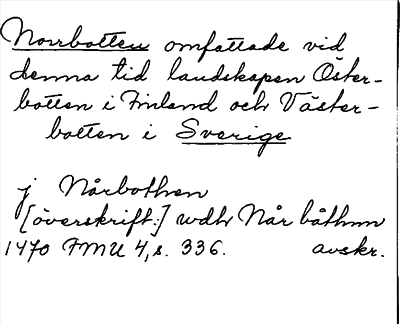 Norrbotten omfattade vid
denna tid landskapen Öster-
botten i Finland och Väster-
botten i Sverige
j Nårbothen
[överskrift:] wdh Når båthnn
1470 FMU 4, s. 336. avskr.